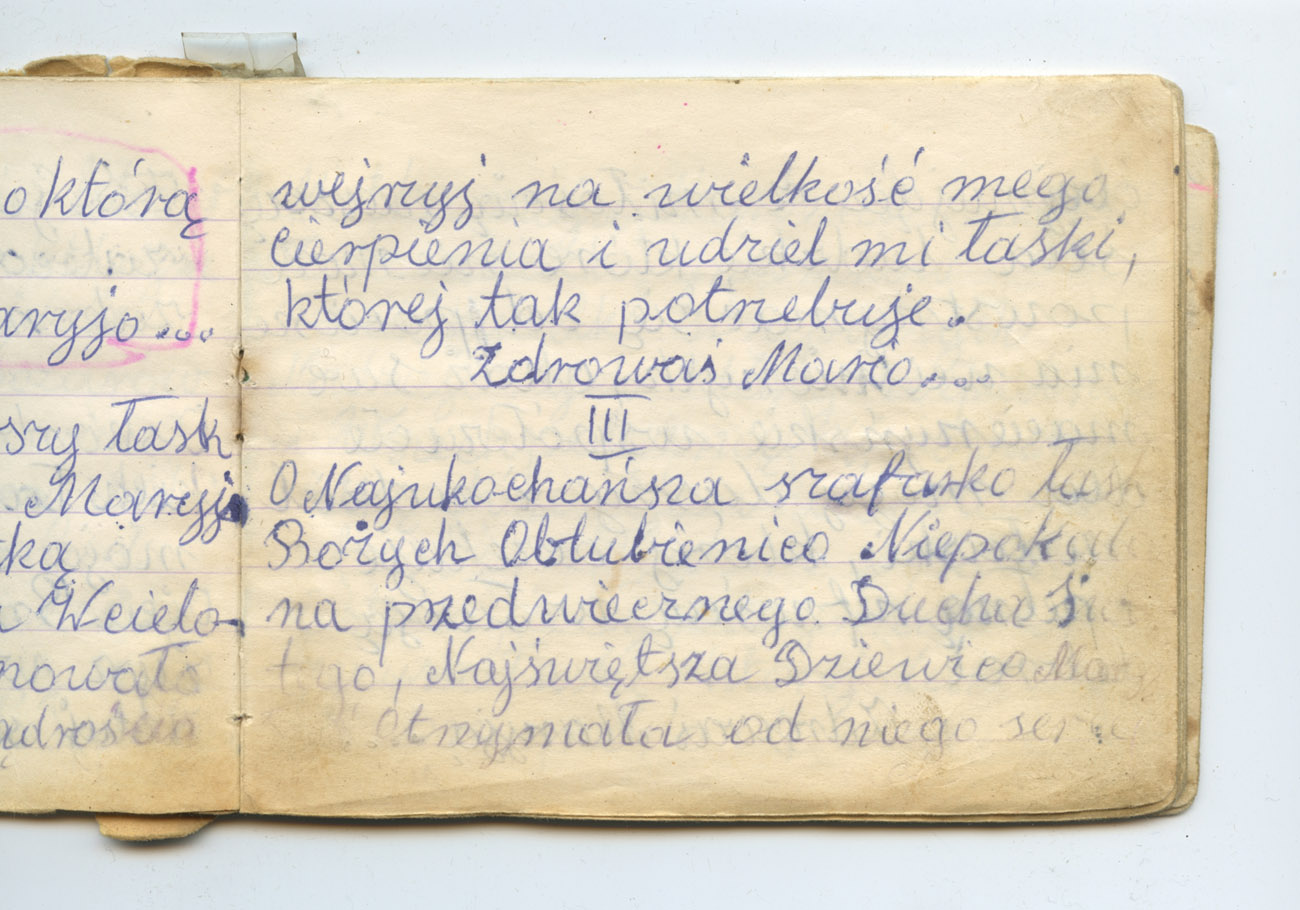 o którą
aryjo...
szy łask
Maryjo
ką
Wcielo-
nowało
wejrzyj na wielkość mego
cierpienia i udziel mi łaski,
której tak potrzebuje.
Zdrowaś Mario...
III
O Najukochańsza szafarko łask
Bożych Oblubienico Niepokala
na przedwiecznego Ducha Świę
tego, Najświętsza Dziewico Mary
Otrzymała od niego serce